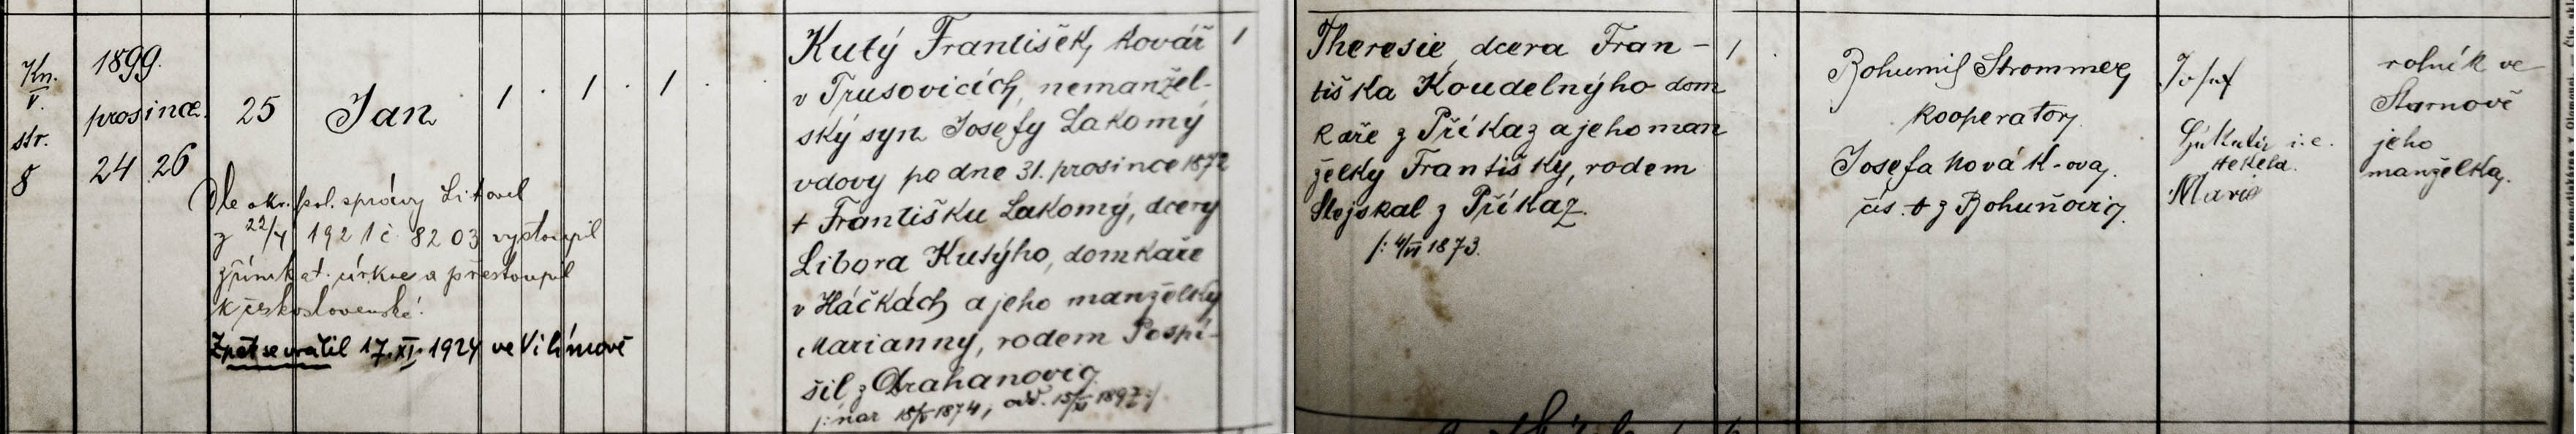 Kn. V. str. 8
1899.
prosince
24 26
25
Jan
1 . 1 . 1 .
Dle okr. pol. správy Litovel
z 22/4 1921 č. 8203 vystoupil
z řím. kat. církve a přestoupil
k československé.
Zpět se vrátil 17. XI. 1924 ve Vilímově
Kutý František, kovář
v Trusovicích, nemanžel-
ský syn Josefy Lakomý
vdovy po dne 31. prosince 1872
+ Františku Lakomý, dcery
Libora Kutýho, domkaře
v Háčkách a jeho manželky
Marianny, rodem Pospí-
šil z Drahanovic
/: nar 18/ 1874, odd. 15/ 1897 :/
1
Theresie, dcera Fran-
tiška Koudelnýho dom
kaře z Příkaz a jeho man
želky Františky, rodem
Stejskal z Příkaz.
/: 4/VI 1873.
1
Bohumil Strommer
kooperator.
Josefa Novák-ova.
čís. z Bohuňovic.
Josef
i. e.
Hekela.
Marie
rolník ve
Štarnově
jeho
manželka.